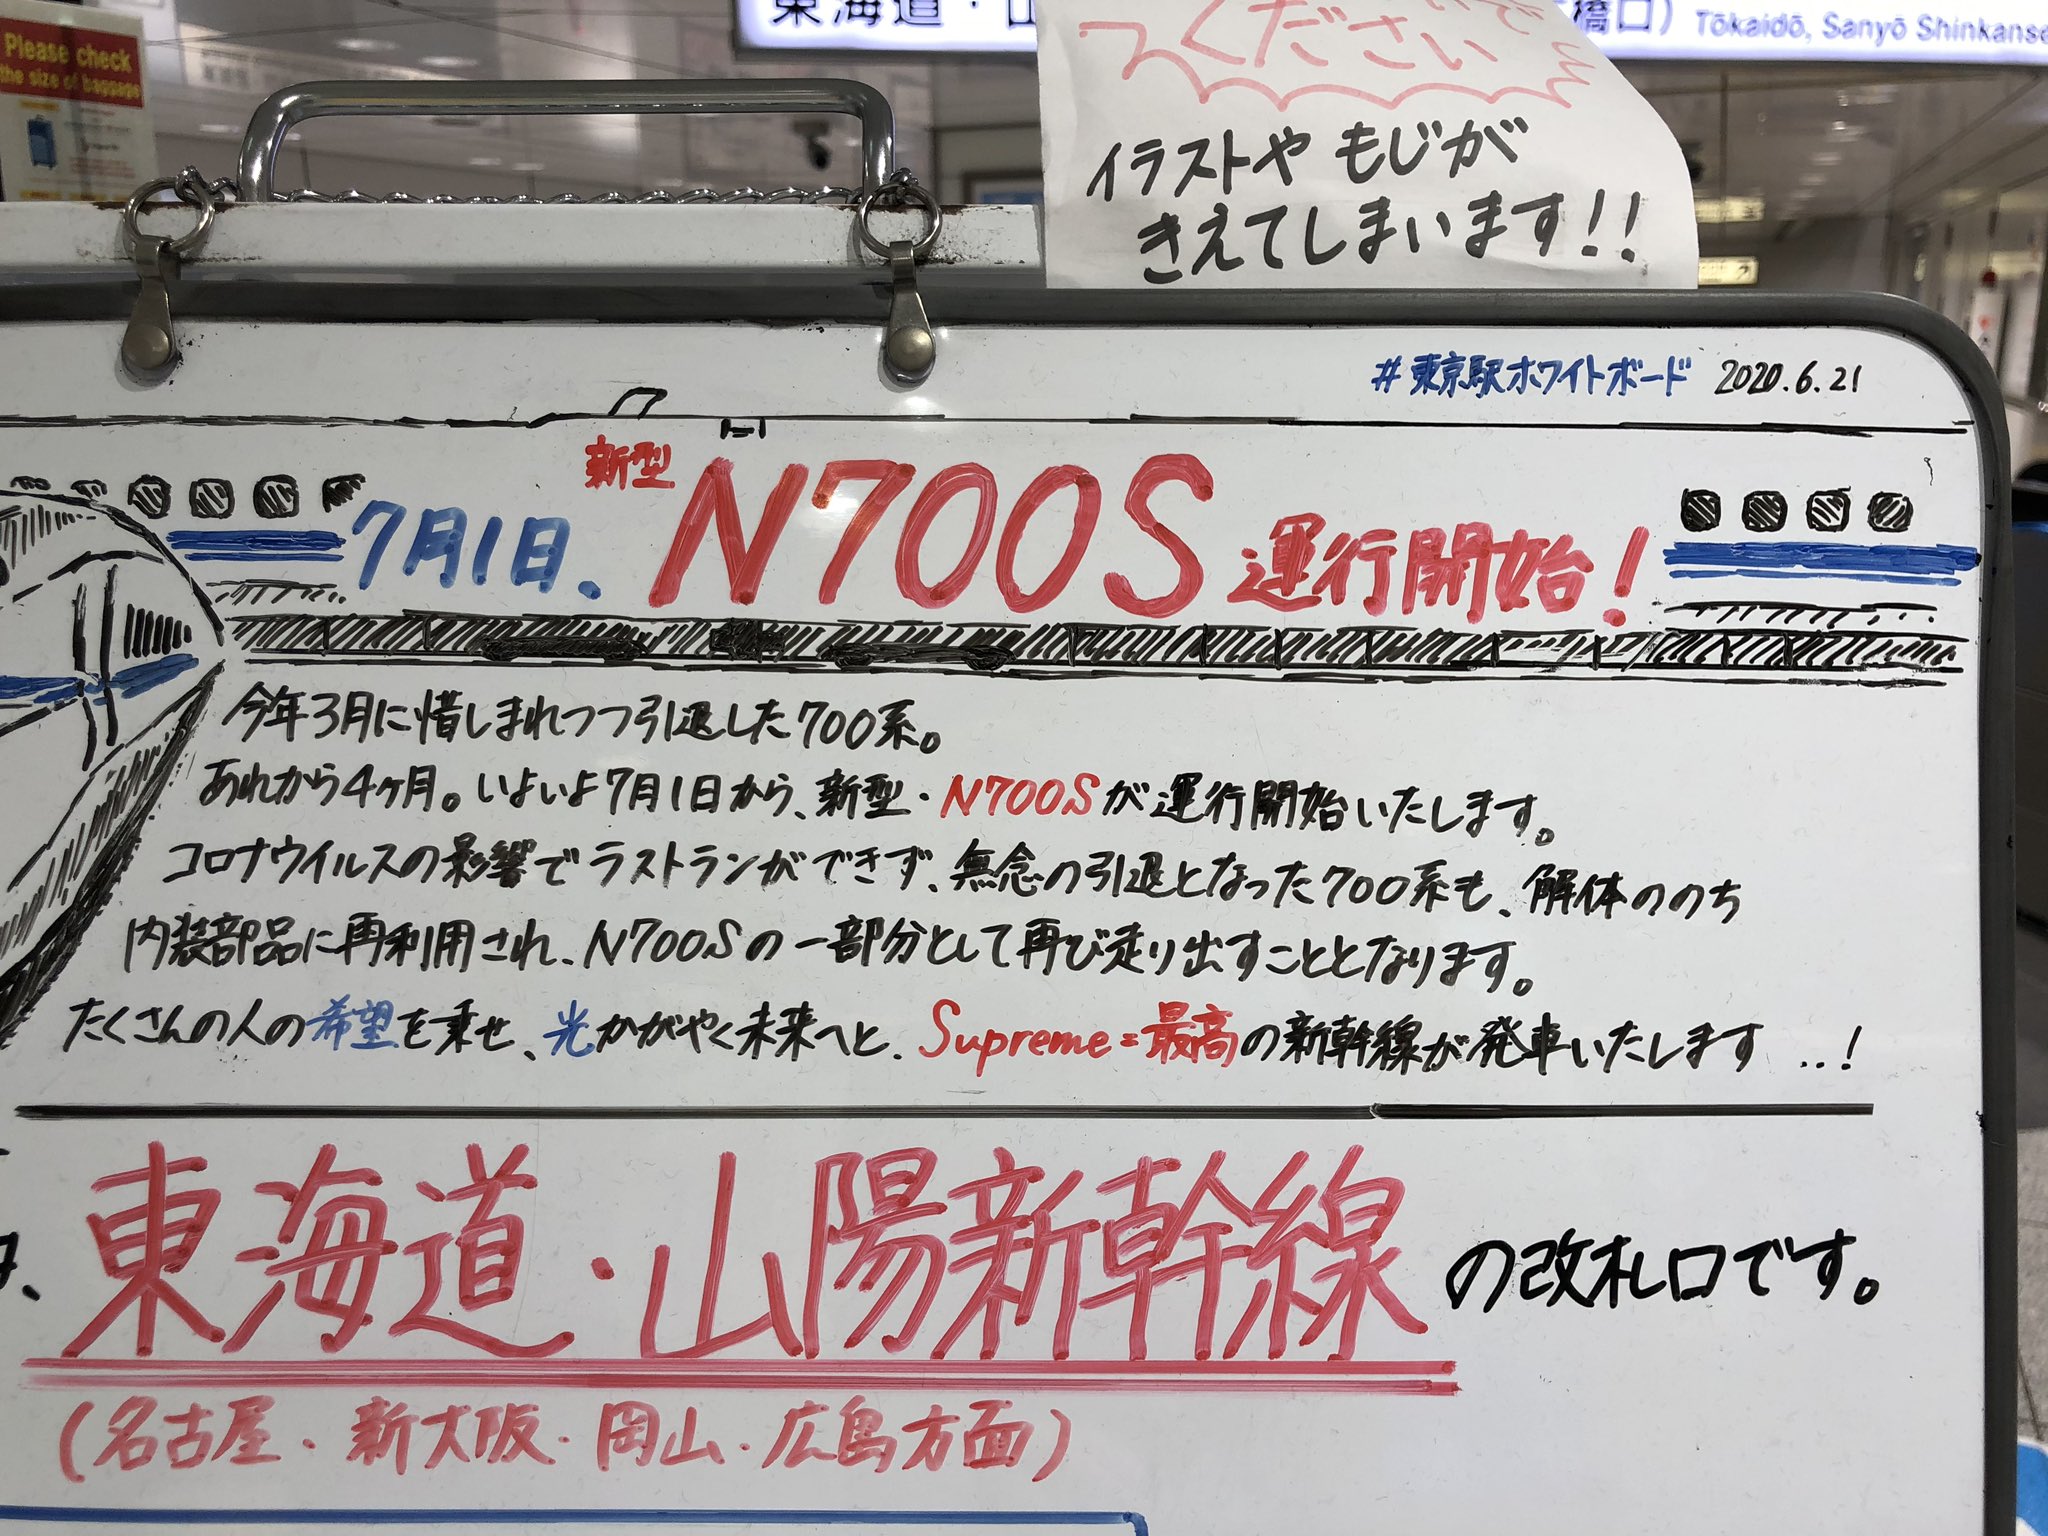 Please check
the size of baggage
東海道・山
橋口）Tōkaidō, Sanyō Shinkanse
ください
イラストや もじが
きえてしまいます!!
#東京駅ホワイトボード 2020.6.21
7月1日、新型 N700S 運行開始!
今年3月に惜しまれつつ引退した700系。
あれから4ヶ月。いよいよ7月1日から、新型・N700Sが運行開始いたします。
コロナウイルスの影響でラストランができず、無念の引退となった700系も、解体ののち
内装部品に再利用され、N700Sの一部分として再び走り出すこととなります。
たくさんの人の希望を乗せ、光かがやく未来へと、Supreme=最高の新幹線が発車いたします...!
東海道・山陽新幹線の改札口です。
(名古屋・新大阪・岡山・広島方面)